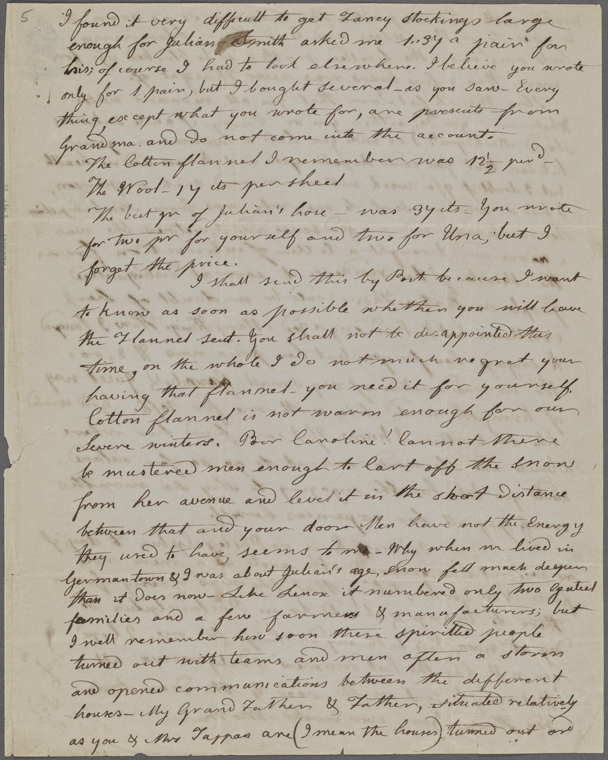 5
I found it very difficult to get Fancy stockings large
enough for Julian Smith asked me 1.37 a pair for
his; of course I had to look elsewhere. I believe you wrote
only for 1 pair, but I bought several - as you saw - Every
thing except what you wrote for, are presents from
Grandma and do not come into the account.
The Cotton flannel I remember was 12½ per yd -
The Wool - 17 cts per sheet
The best pr of Julian's hose - was 37 cts - You wrote
for two pr for yourself and two for Una, but I
forget the price.
I shall send this by Post because I want
to know as soon as possible whether you will have
the Flannel sent. You shall not be disappointed this
time, on the whole I do not much regret your
having that flannel - you need it for yourself.
Cotton flannel is not warm enough for our
Severe winters. Poor Caroline! Cannot there
be mustered men enough to cart off the snow
from her avenue and level it in the short distance
between that and your door Men have not the Energy
they used to have, seems to me - Why when we lived in
Germantown & I was about Julian's age, snow fell much deeper
than it does now - Like Lenox it numbered only two Genteel
families and a few farmers & manufacturers; but
I well remember how soon these spirited people
turned out with teams and men after a storm
and opened communications between the different
houses - My Grand Father & Father, situated relatively
as you & Mrs Tappan are (I mean the houses) turned out and